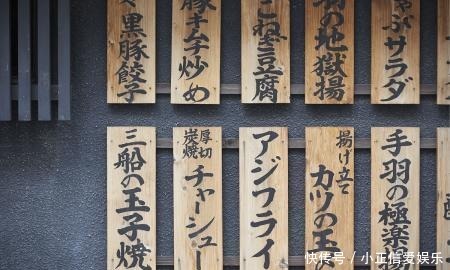 黒豚餃子
豚キムチ炒め
こねぎ豆腐
羽の地獄揚
ぶサラダ
三船の玉子焼
厚切
炭焼
チャーシュー
アジフライ
揚げ立て
カツの玉
手羽の極楽
快传号 / 小正信爱娱乐